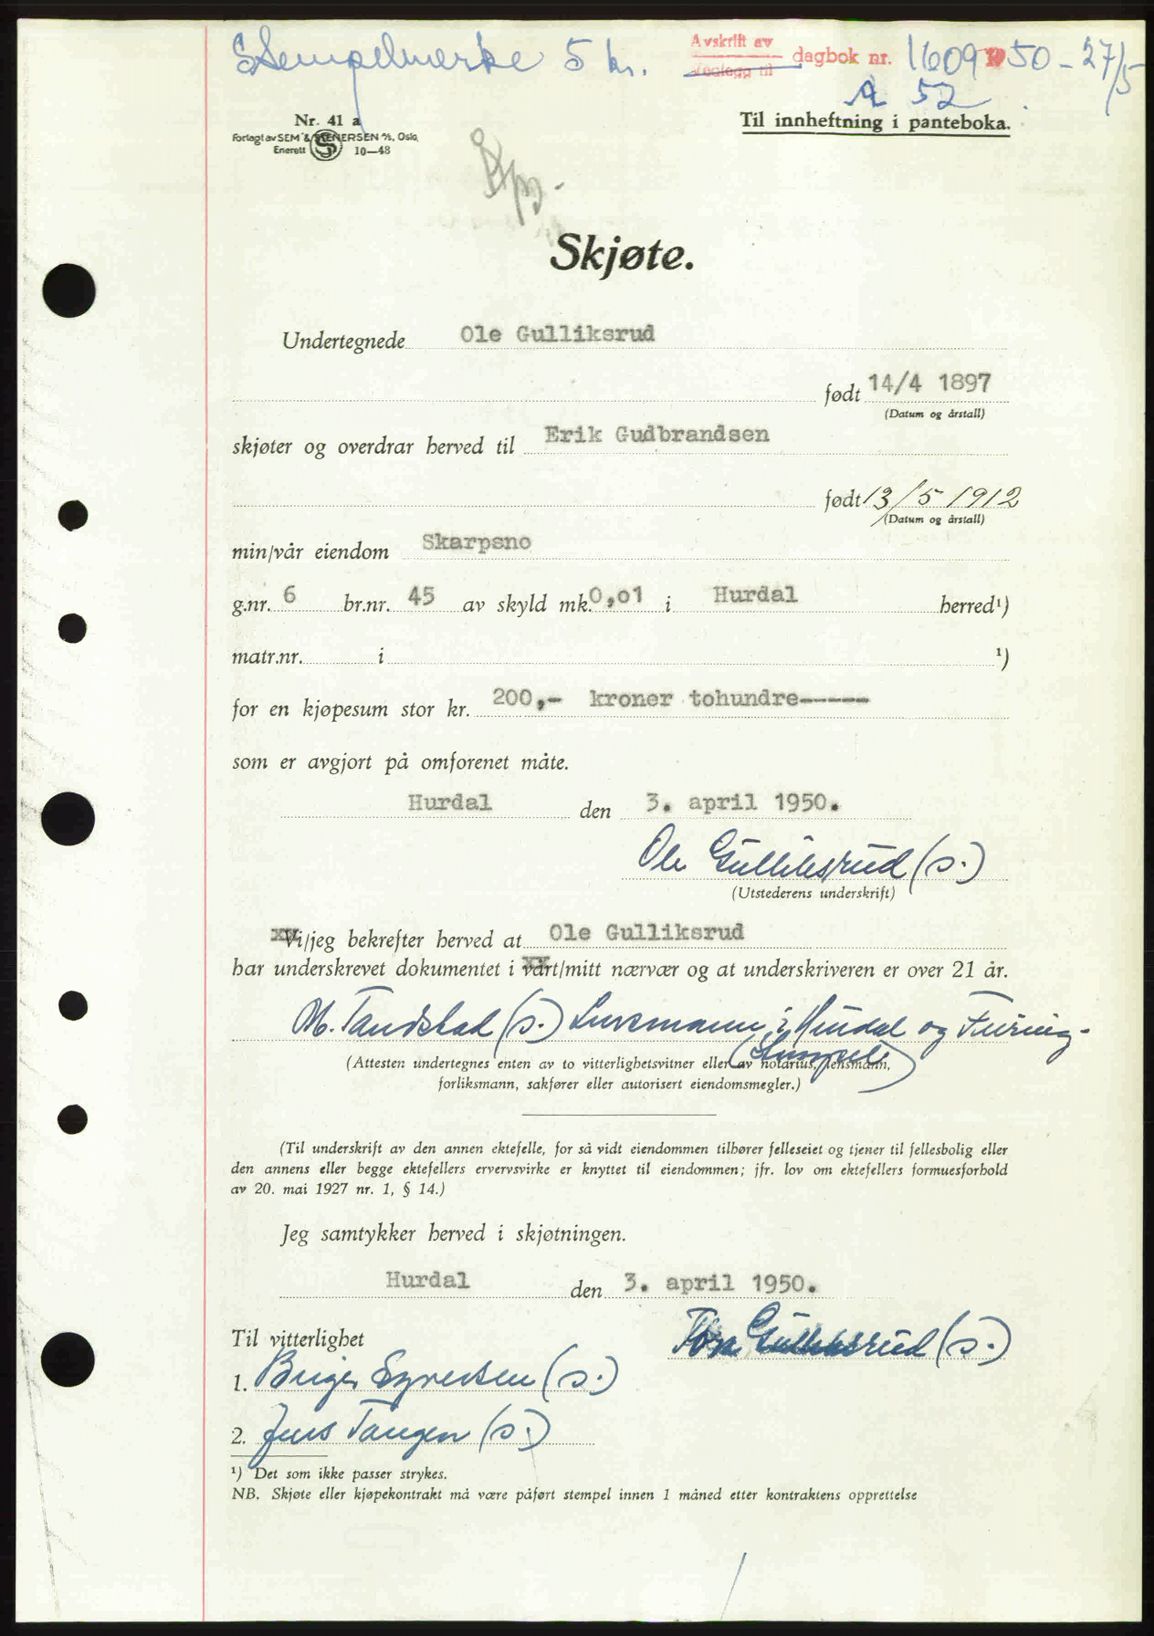 Stempelmerke 5 kr.
Avskrift av
Vedlegg til
dagbok nr. 1609 1950 - 27/5
A 52
Nr. 41 a
Forlagt av SEM & STENERSEN A/S, Oslo.
Enerett 10—48
Til innheftning i panteboka.
Skjøte.
Undertegnede Ole Gulliksrud
født 14/4 1897
(Datum og årstall)
skjøter og overdrar herved til Erik Gudbrandsen
født 13/5 1912
(Datum og årstall)
min/vår eiendom Skarpsno
g.nr. 6 br.nr. 45 av skyld mk. 0,01 i Hurdal herred¹)
matr.nr. i ¹)
for en kjøpesum stor kr. 200,- kroner tohundre-----
som er avgjort på omforenet måte.
Hurdal den 3. april 1950.
Ole Gulliksrud (s.)
(Utstederens underskrift)
Vi/jeg bekrefter herved at Ole Gulliksrud
har underskrevet dokumentet i vårt/mitt nærvær og at underskriveren er over 21 år.
M. Tandstad (s.) Lensmann i Hurdal og Feiring.
(Stempel)
(Attesten undertegnes enten av to vitterlighetsvitner eller av notarius, lensmann,
forliksmann, sakfører eller autorisert eiendomsmegler.)
(Til underskrift av den annen ektefelle, for så vidt eiendommen tilhører felleseiet og tjener til fellesbolig eller
den annens eller begge ektefellers ervervsvirke er knyttet til eiendommen; jfr. lov om ektefellers formuesforhold
av 20. mai 1927 nr. 1, § 14.)
Jeg samtykker herved i skjøtningen.
Hurdal den 3. april 1950.
Til vitterlighet
Gulliksrud (s.)
1. Birger Syversen (s.)
2. Jens Tangen (s.)
¹) Det som ikke passer strykes.
NB. Skjøte eller kjøpekontrakt må være påført stempel innen 1 måned etter kontraktens opprettelse